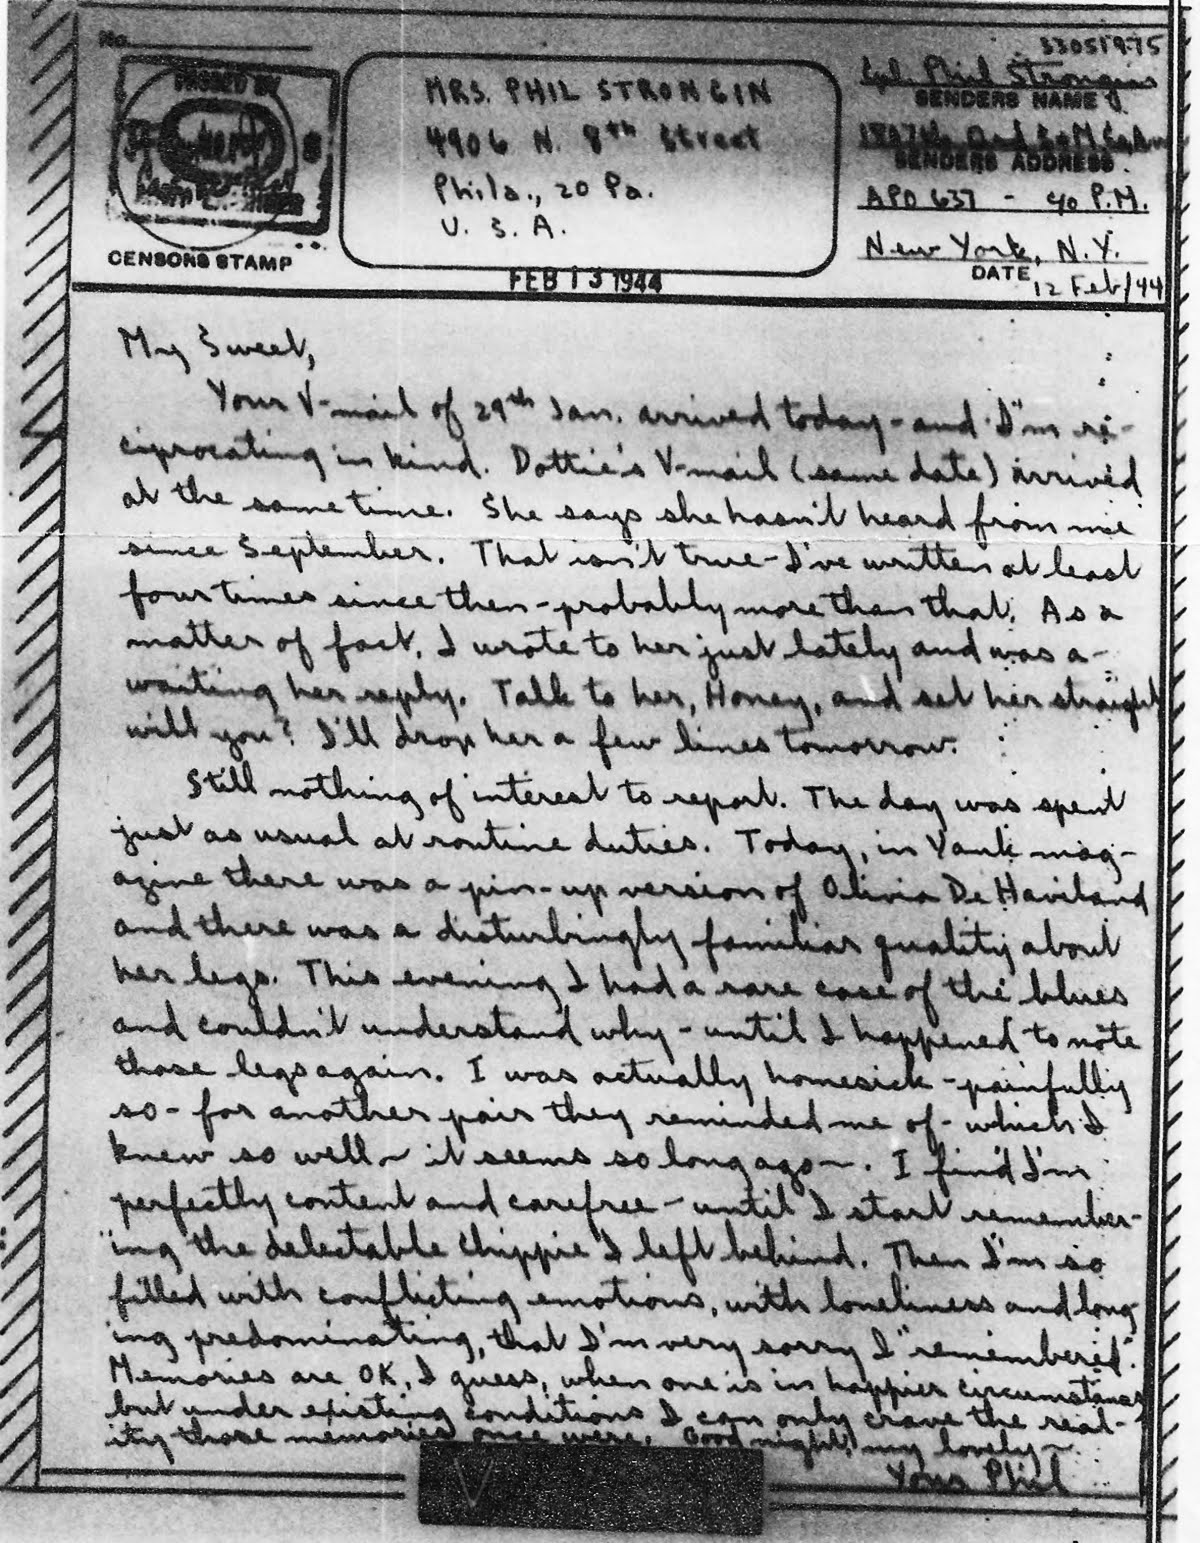 No.
33051975
PASSED BY
Cpl. Phil Strongin
SENDERS NAME
MRS. PHIL STRONGIN
4906 N. 8th Street
Phila., 20 Pa.
U. S. A.
SENDERS ADDRESS
APO 637 - % P.M.
New York, N.Y.
CENSORS STAMP
DATE
12 Feb/44
FEB 13 1944
My Sweet,
Your V-mail of 29th Jan. arrived today - and I'm re-
ciprocating in kind. Dottie's V-mail (same date) arrived
at the same time. She says she hasn't heard from me
since September. That isn't true - I've written at least
four times since then - probably more than that. As a
matter of fact, I wrote to her just lately and was a-
waiting her reply. Talk to her, Honey, and set her straight
will you? I'll drop her a few lines tomorrow.
Still nothing of interest to report. The day was spent
just as usual at routine duties. Today, in Yank mag-
azine there was a pin-up version of Olivia De Haviland
and there was a disturbingly familiar quality about
her legs. This evening I had a rare case of the blues
and couldn't understand why - until I happened to note
those legs again. I was actually homesick - painfully
so - for another pair they reminded me of - which I
knew so well ~ it seems so long ago ~. I find I'm
perfectly content and carefree - until I start remember-
ing the delectable Chippie I left behind. Then I'm so
filled with conflicting emotions, with loneliness and long
ing predominating, that I'm very sorry I "remembered".
Memories are OK, I guess, when one is in happier circumstances
but under existing conditions I can only crave the real-
ity those memories once were. Good night, my lovely ~
Your Phil
V